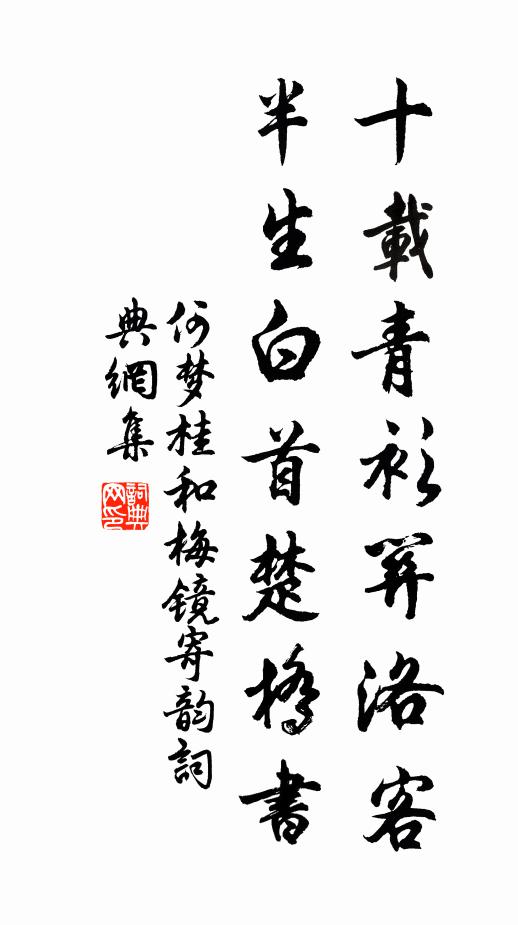 十載青衫洛客
半生白首楚橋書
何梦桂和梅镜寄韵詞
典網集
詞典
网印